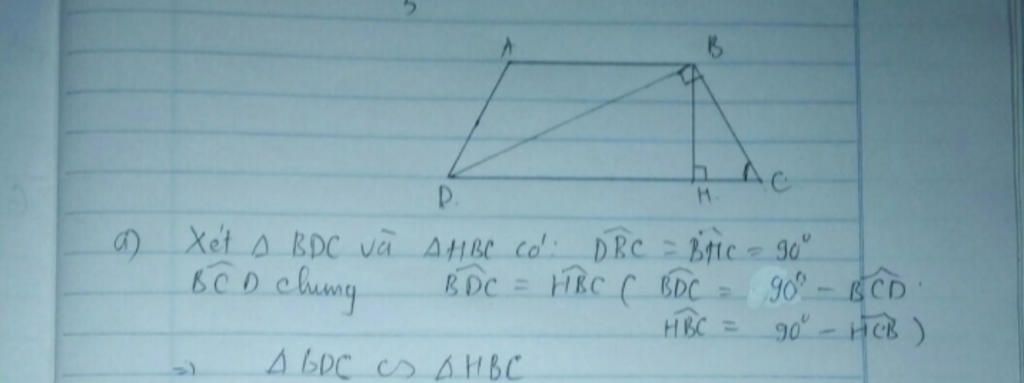 A B
D. H. C
a) Xét Δ BDC và ΔHBC có: D̂BC = B̂HC = 90°
B̂CD chung B̂DC = ĤBC ( B̂DC = 90° - B̂CD
ĤBC = 90° - ĤCB )
=> Δ BDC ∽ Δ HBC